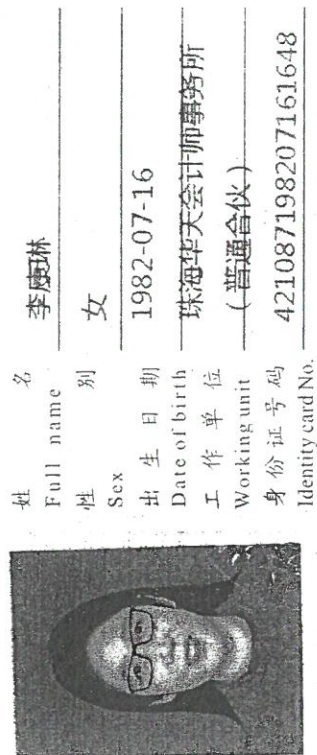 姓 名 李
Full name
性 别 女
Sex
出 生 日 期 1982-07-16
Date of birth
工 作 单 位 珠海华天会计师事务所
Working unit (普通合伙)
身 份 证 号 码 421087198207161648
Identity card No.